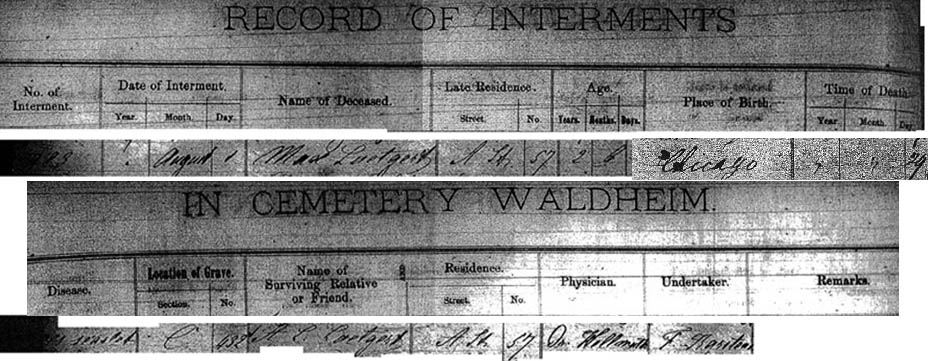 RECORD OF INTERMENTS
No. of Interment. Date of Interment. Name of Deceased. Late Residence. Age. Place of Birth. Time of Death
Year. Month. Day. Street. No. Years. Months. Days. Year. Month. Day.
" August 1 Max Luetgert A St. 57 2 6 Chicago " " 29
IN CEMETERY WALDHEIM.
Disease. Location of Grave. Name of Surviving Relative or Friend. Residence. Physician. Undertaker. Remarks.
Section. No. Street. No.
C Luetgert A St. 57 Dr.